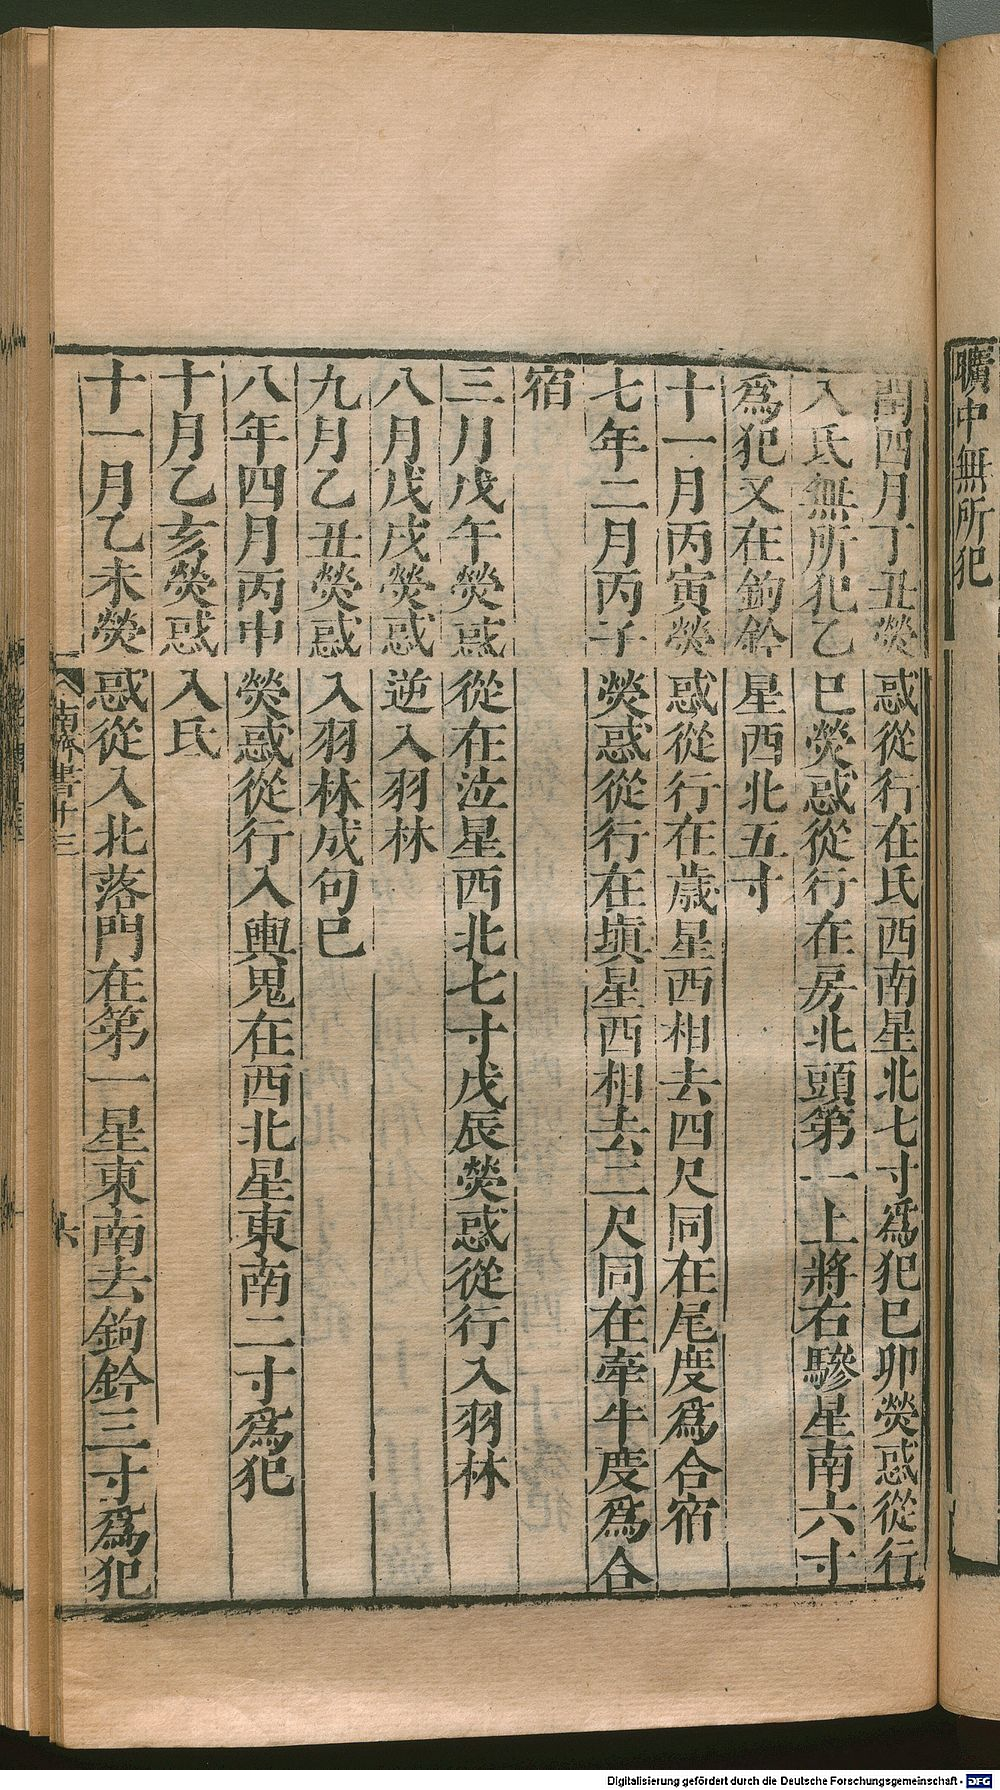 曠中無所犯
閏四月丁丑熒惑從行在氐西南星北七寸爲犯巳卯熒惑從行
入氐無所犯乙巳熒惑從行在房北頭第一上將右驂星南六寸
爲犯又在鉤鈐星西北五寸
十一月丙寅熒惑從行在歲星西相去四尺同在尾度爲合宿
七年二月丙子熒惑從行在塡星西相去二尺同在牽牛度爲合
宿
三月戊午熒惑從在泣星西北七寸戊辰熒惑從行入羽林
八月戊戌熒惑逆入羽林
九月乙丑熒惑入羽林成句巳
八年四月丙申熒惑從行入輿鬼在西北星東南二寸爲犯
十月乙亥熒惑入氐
十一月乙未熒惑從入北落門在第一星東南去鉤鈐三寸爲犯
南齊書十三
六
Digitalisierung gefördert durch die Deutsche Forschungsgemeinschaft - DFG